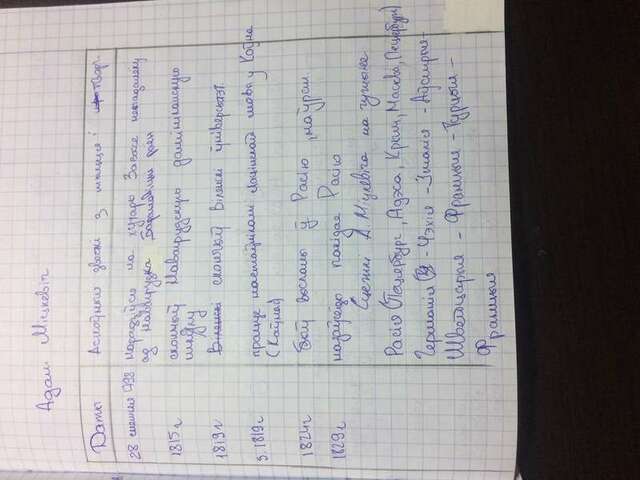 Адам Міцкевіч
Даты
Асноўныя звесткі з жыцця і твор.
28 снежня 1798
нарадзіўся на хутары Завоссе непадалёку
ад Навагрудка
1815 г
скончыў Навагрудскую дамініканскую
школу
1819 г
скончыў Віленскі ўніверсітэт
з 1819 г
працуе настаўнікам лацінскай мовы у Коўна
(Каўнас)
1824 г
быў высланы ў Расію
1829 г
назаўсёды пакідае Расію
Сцежкі А. Міцкевіча на чужыне
Расія (Пецербург, Адэса, Крым, Масква, Пецербург)
Германія - Чэхія - Італія - Аўстрыя -
Швейцарыя - Францыя - Турцыя -
Францыя